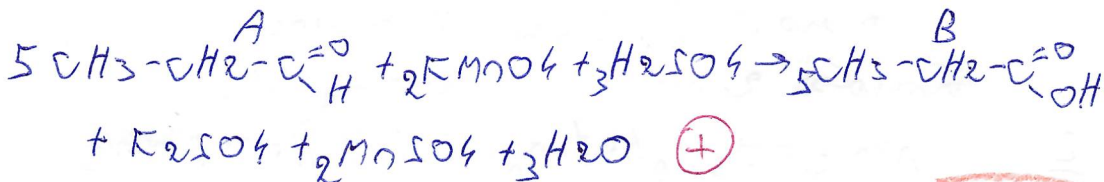 A B
5 CH3-CH2-C=O H + 2KMnO4 + 3H2SO4 → 5CH3-CH2-C=O OH
+ K2SO4 + 2MnSO4 + 3H2O +